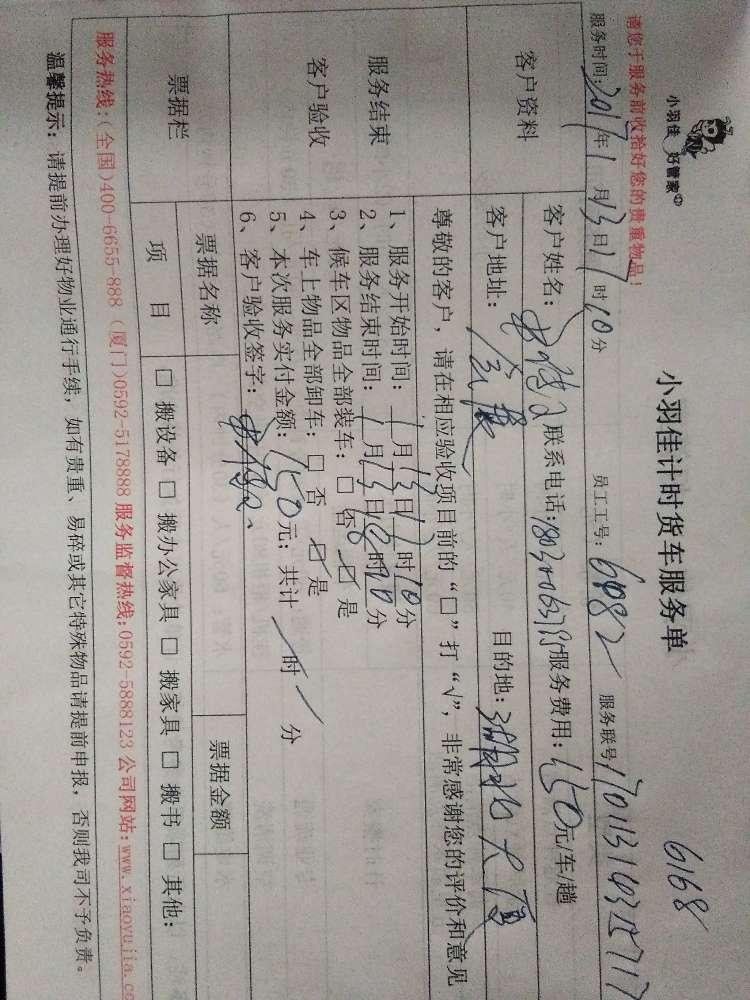 小羽佳 好管家
小羽佳计时货车服务单
6168
请您于服务前收拾好您的贵重物品!
服务时间: 2017年1月13日17时10分 员工工号: 6082 服务联号
客户资料
客户姓名: 联系电话: 服务费用: 150元/车/趟
客户地址: 目的地: 大厦
尊敬的客户，请在相应验收项目前的“□”打“√”，非常感谢您的评价和意见
服务结束
客户验收
1、服务开始时间: 1月13日17时10分
2、服务结束时间: 1月13日18时10分
3、候车区物品全部装车: □ 否 ☑ 是
4、车上物品全部卸车: □ 否 ☑ 是
5、本次服务实付金额: 150元; 共计 / 时 / 分
6、客户验收签字:
票据栏
票据名称 票据金额
项 目 □ 搬设备 □ 搬办公家具 □ 搬家具 □ 搬书 □ 其他:
服务热线:(全国)400-6655-888 (厦门)0592-5178888 服务监督热线:0592-5888123 公司网站:www.xiaoyujia.co
温馨提示: 请提前办理好物业通行手续, 如有贵重、易碎或其它特殊物品请提前申报, 否则我司不予负责。